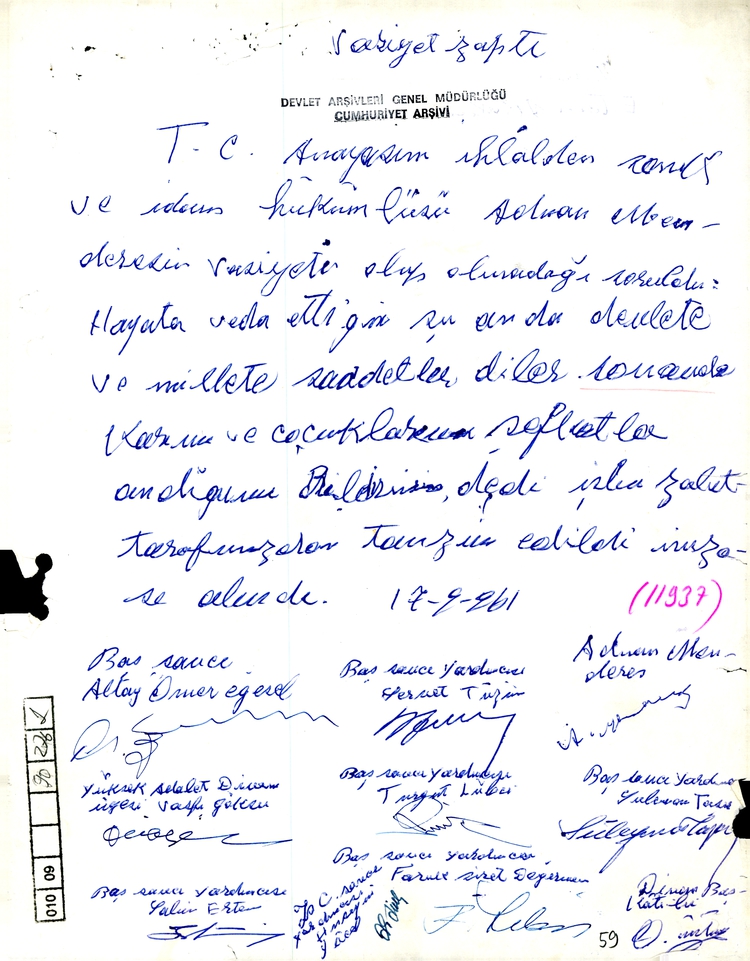 Vasiyet zaptı
DEVLET ARŞİVLERİ GENEL MÜDÜRLÜĞÜ
CUMHURİYET ARŞİVİ
T. C. Anayasanı ihlâlden sanığ
ve idam hükümlüsü Adnan Men-
deresin vasiyeti olup olmadağı soruldu:
Hayata veda ettiğim şu anda devlete
ve millete saadetler diler
Karımı ve çocuklarımı şefkatle
andığımı Bildirin, dedi işbu zabıt
tarafımızdan tanzim edildi imza-
se alındı. 17-9-961
(11937)
Baş savcı
Altay Ömer egesel
Baş savcı yardımcısı
Servet Tüzün
Adnan Men-
deres
Yüksek Adalet Divanı
üyesi Vasfi göksu
Baş savcı yardımcısı
Turgut
Baş savcı yardımcı
Süleyman
Süleyman
Baş savcı yardımcısı
Faruk
Baş savcı yardımcısı
Selim Erten
Divan Baş-
kâtibi
010 09
59